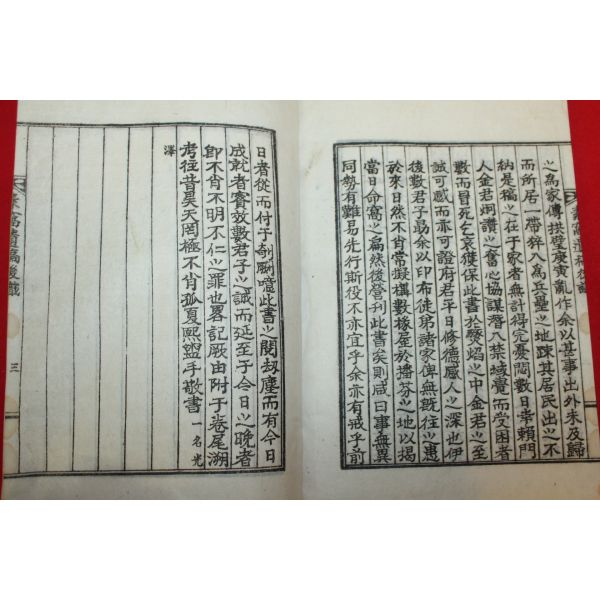 之爲家傳拱璧庚寅亂作余以甚事出外未及歸
而所居一帶猝入爲兵壘之地踈其居民出之不
納是稿之在于家者無計得完憂悶數日幸賴門
人金君炯讚之奮心協謀潛入禁域覺而受困者
數而冒死乞哀獲保此書於燹焰之中金君之至
誠可感而亦可證府君平日修德感人之深也伊
後數君子勗余以印布徒弟諸家俾無旣往之患
於來日然不肯常擬構數椽屋於播芬之地以揭
當日命窩之扁然後營刊此書矣則咸曰事無異
同勢有難易先行斯役不亦宜乎余亦有戒乎前
日者從而付于剞劂噫此書之閱劫塵而有今日
成就者實效數君子之誠而延至于今日之晚者
卽不肖不明不仁之罪也畧記厥由附于卷尾溯
考往昔昊天罔極不肖孤夏熙盥手敬書 一名光
澤
窩遺稿後識